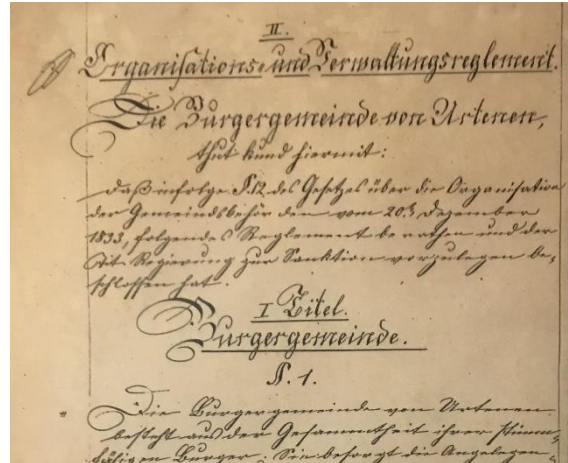 II.
Organisations- und Verwaltungsreglement.
Die Burgergemeinde von Urtenen,
thut kund hiermit:
daß infolge §. 12 des Gesetzes über die Organisation
der Gemeindsbehörden vom 20. Dezember
1833, folgendes Reglement berathen und der
Tit. Regierung zur Sanktion vorzulegen be-
schlossen hat.
I Titel.
Burgergemeinde.
§. 1.
Die Burgergemeinde von Urtenen
besteht aus der Gesammtheit ihrer stimm-
fähigen Burger. Sie besorgt die Angelegen-